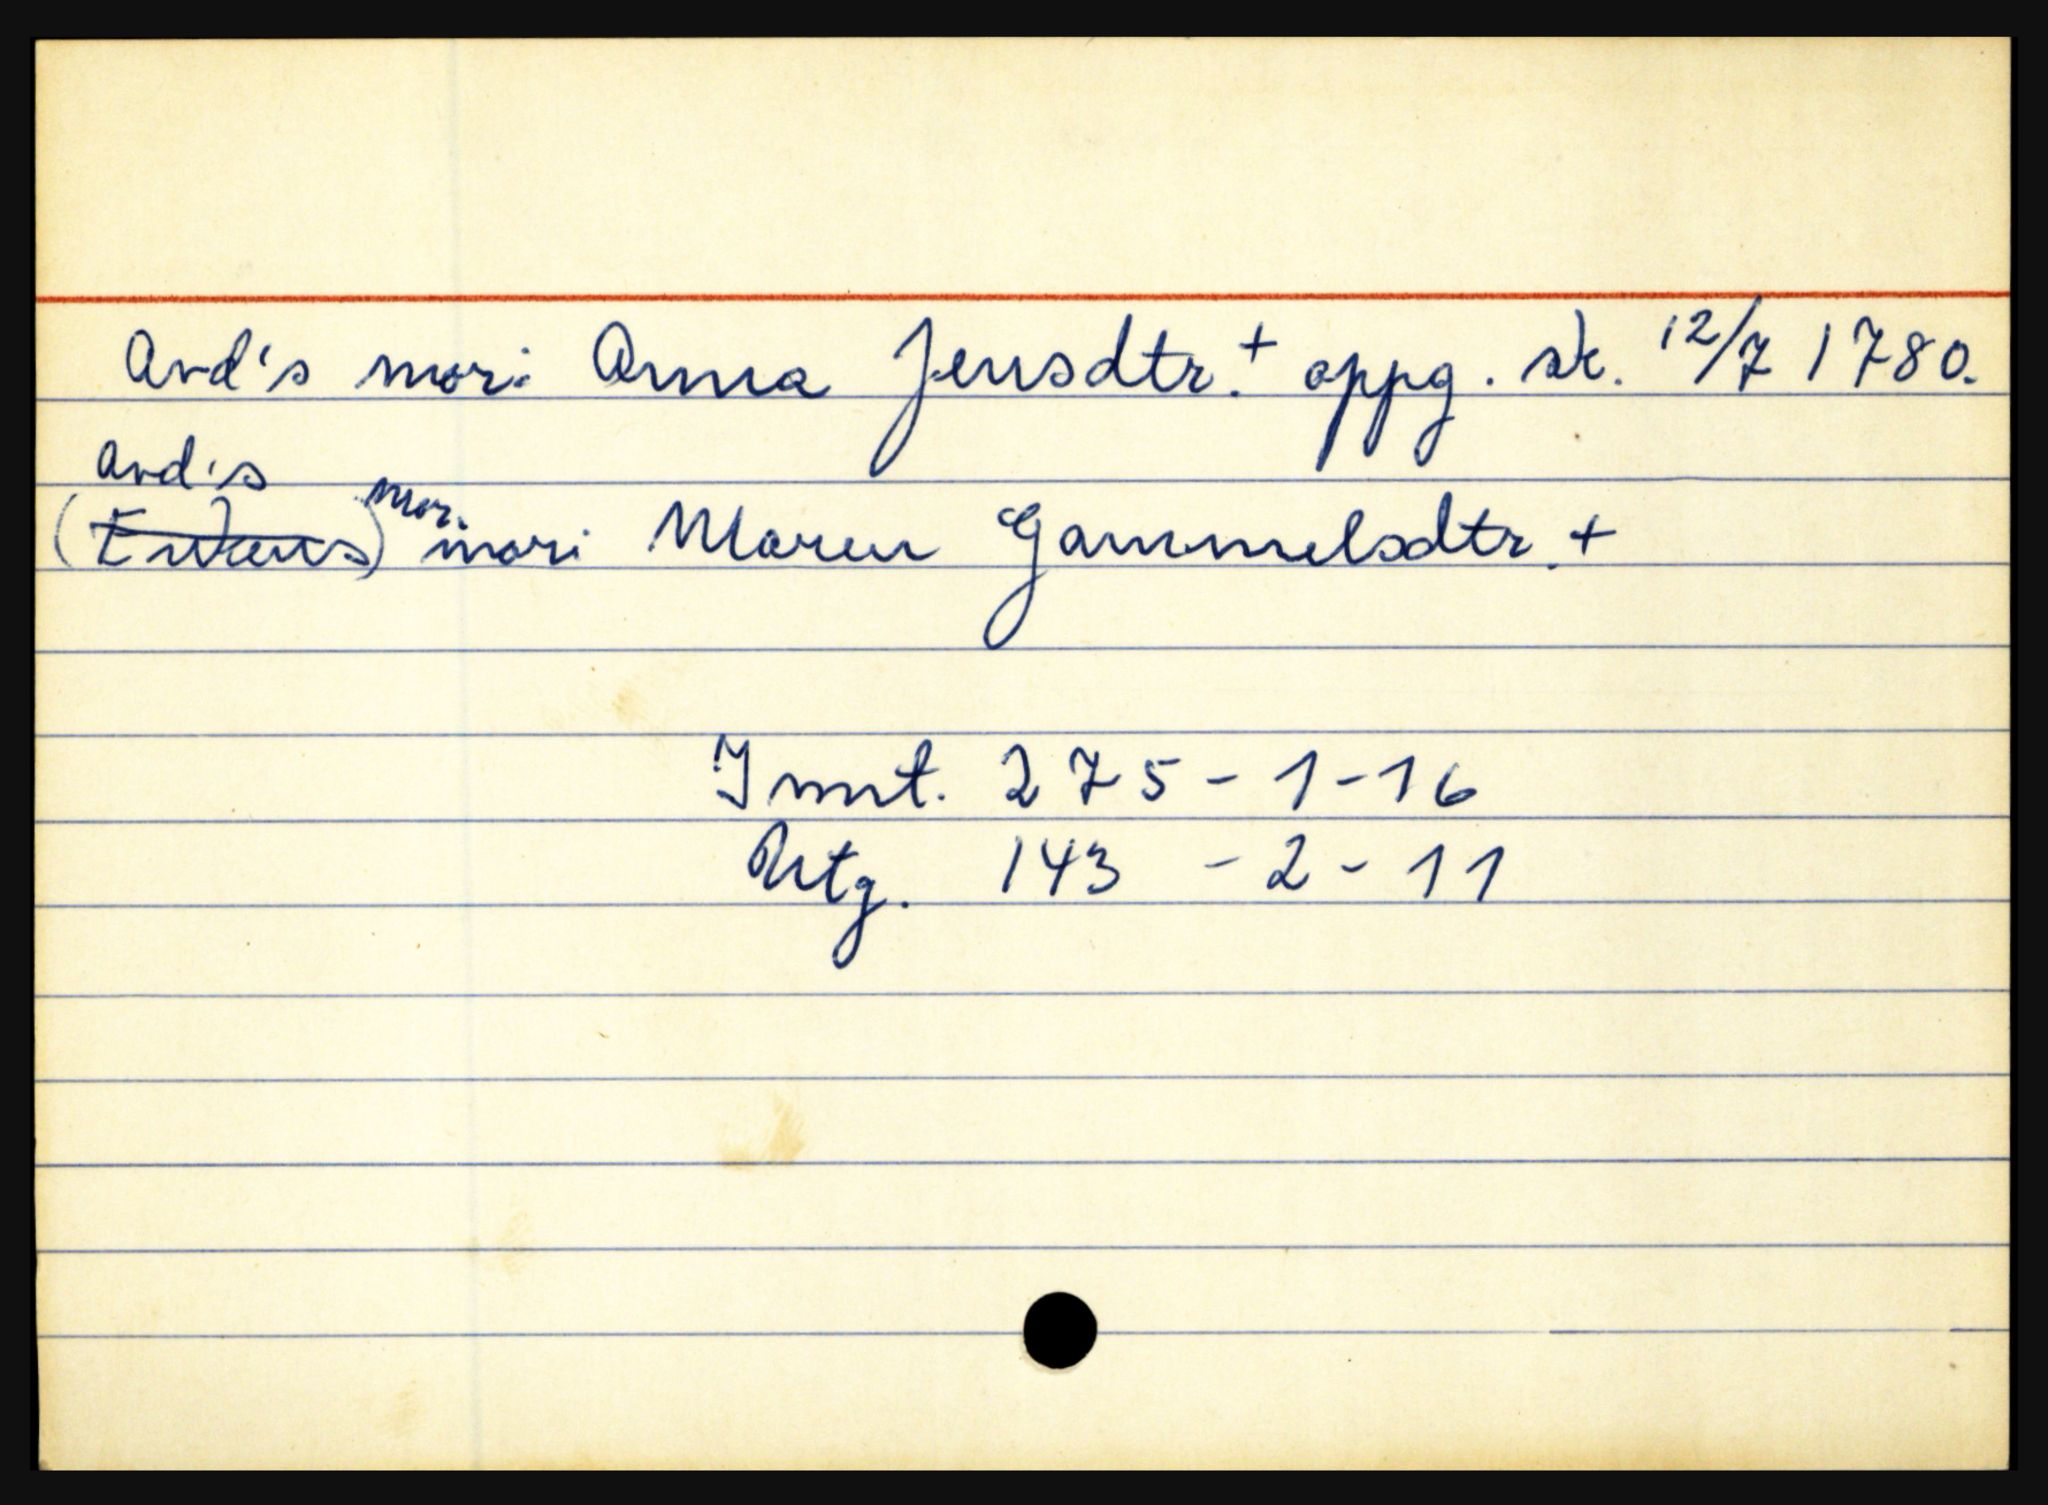 Avd's mor: Anna Jensdtr.+ oppg. sk. 12/7 1780.
avd's mor.
(Enkens) mor: Maren Gammelsdtr. +
Innt. 275 - 1 - 16
Utg. 143 - 2 - 11